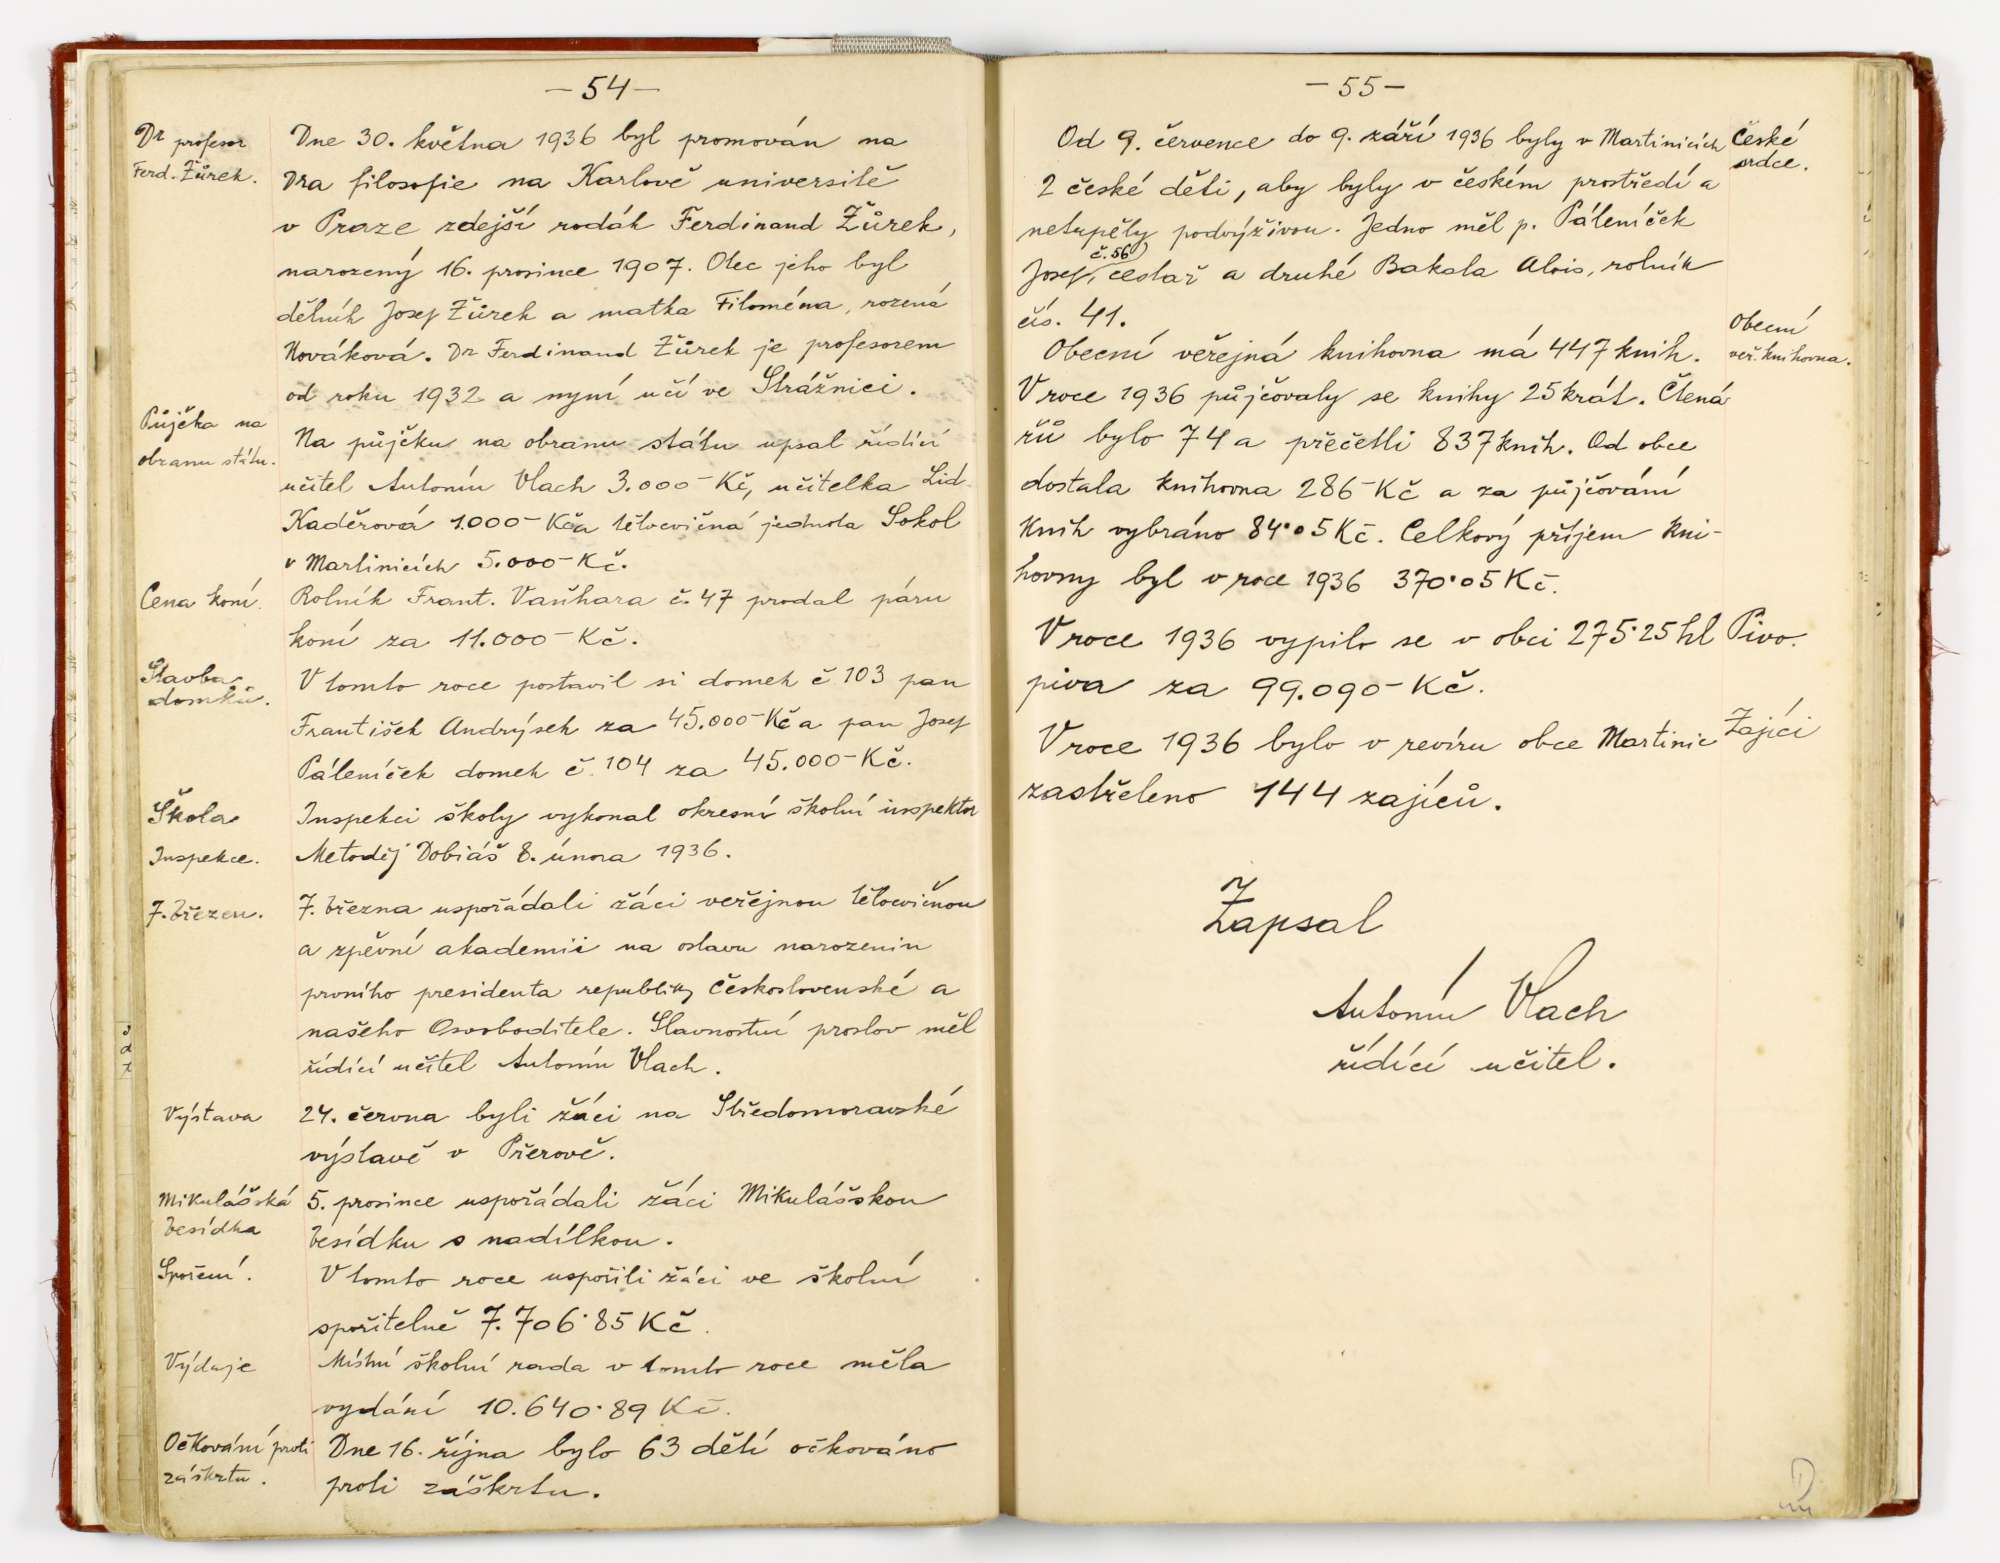 — 54 —
Dr profesor
Ferd. Žůrek.
Dne 30. května 1936 byl promován na
Dra filosofie na Karlově universitě
v Praze zdejší rodák Ferdinand Žůrek,
narozený 16. prosince 1907. Otec jeho byl
dělník Josef Žůrek a matka Filoména, rozená
Nováková. Dr Ferdinand Žůrek je profesorem
od roku 1932 a nyní učí ve Strážnici.
Půjčka na
obranu státu.
Na půjčku na obranu státu upsal řídící
učitel Antonín Vlach 3.000 – Kč, učitelka Lid.
Kaděrová 1.000 – Kč a tělocvičná jednota Sokol
v Martinicích 5.000 – Kč.
Cena koní.
Rolník Frant. Vaňhara č. 47 prodal páru
koní za 11.000 – Kč.
Stavba
domků.
V tomto roce postavil si domek č 103 pan
František Andrýsek za 45.000 – Kč a pan Josef
Páleníček domek č. 104 za 45.000 – Kč.
Škola
Inspekce.
Inspekci školy vykonal okresní školní inspektor
Metoděj Dobiáš 8. února 1936.
7. březen.
7. března uspořádali žáci veřejnou tělocvičnou
a zpěvní akademii na oslavu narozenin
prvního presidenta republiky Československé a
našeho Osvoboditele. Slavnostní proslov měl
řídící učitel Antonín Vlach.
Výstava
24. června byli žáci na Středomoravské
výstavě v Přerově.
Mikulášská
besídka
5. prosince uspořádali žáci Mikulášskou
besídku s nadílkou.
Spoření.
V tomto roce uspořili žáci ve školní
spořitelně 7.706·85 Kč.
Výdaje
Místní školní rada v tomto roce měla
vydání 10.640·89 Kč.
Očkování proti
záškrtu.
Dne 16. října bylo 63 dětí očkováno
proti záškrtu.
— 55 —
Od 9. července do 9. září 1936 byly v Martinicích
2 české děti, aby byly v českém prostředí a
netrpěly podvýživou. Jedno měl p. Páleníček
č. 56
Josef, cestař a druhé Bakala Alois, rolník
čís. 41.
České
srdce.
Obecní veřejná knihovna má 447 knih.
V roce 1936 půjčovaly se knihy 25krát. Čtená
řů bylo 74 a přečetli 837 knih. Od obce
dostala knihovna 286 – Kč a za půjčování
knih vybráno 84·05 Kč. Celkový příjem kni-
hovny byl v roce 1936 370·05 Kč.
Obecní
veř. knihovna.
V roce 1936 vypilo se v obci 275·25 hl
piva za 99.090 – Kč.
Pivo.
V roce 1936 bylo v revíru obce Martinic
zastřeleno 144 zajíců.
Zajíci
Zapsal
Antonín Vlach
řídící učitel.